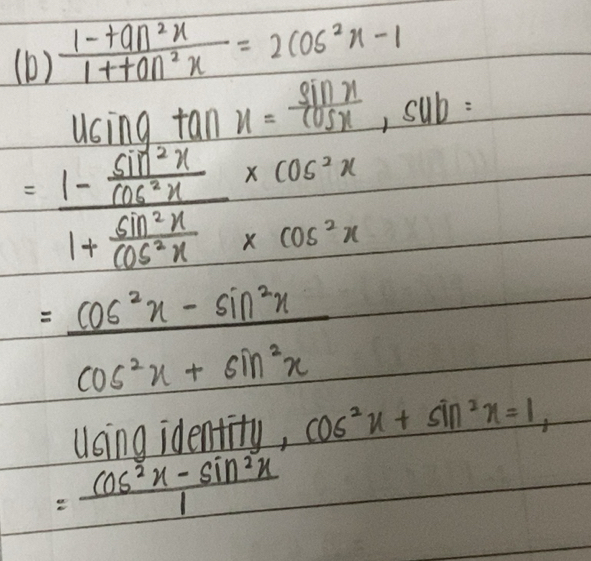 (b) (1 - tan²x)/(1 + tan²x) = 2cos²x - 1
using tan x = sin x/cos x, sub:
= (1 - sin²x/cos²x × cos²x)/(1 + sin²x/cos²x × cos²x)
= (cos²x - sin²x)/(cos²x + sin²x)
Using identity, cos²x + sin²x = 1,
= (cos²x - sin²x)/1